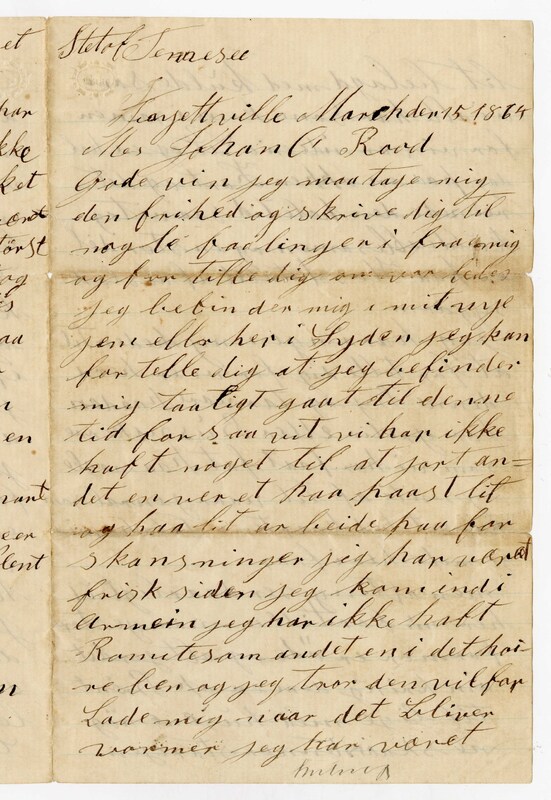 et
har
kke
ket
ært
Törst
og
aa
n
en
nart
eer
lent
m
Stetof Tennesee
Fayettville March der 15 1865
Mes Johan A Rood
Gode vin jeg maa taje mig
den frihed og skrive dig til
nogle faalinger i fra mig
og for tille dig om vor ledes
jeg befinder mig i mit nye
jem ells her i Syden jeg kan
for telle dig at jeg befinder
mig taaligt gaat til denne
tid for saa vit vi har ikke
haft noget til at jort an=
det en veret paa paast lit
og haa lit arbeide paa for
skansninger jeg har været
frisk siden jeg kom ind i
Armein jeg har ikke haft
Romite som andet en i det hoi-
re ben og jeg tror den vil for
Lade mig naar det bliver
varmer jeg har været